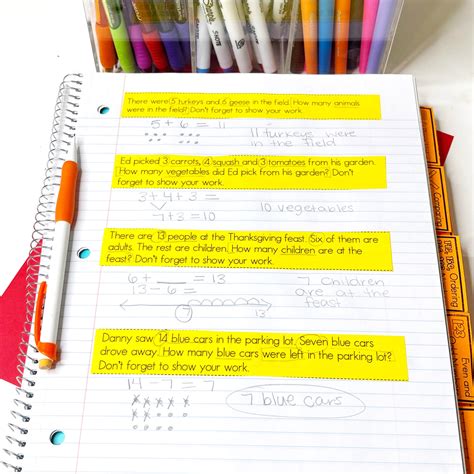 Sharpie
There were 5 turkeys and 6 geese in the field. How many animals
were in the field? Don't forget to show your work.
5 + 6 = 11
11 turkeys were
in the field
Ed picked 3 carrots, 4 squash and 3 tomatoes from his garden.
How many vegetables did Ed pick from his garden? Don't
forget to show your work.
3+4+3=
7+3=10
10 vegetables
There are 13 people at the Thanksgiving feast. Six of them are
adults. The rest are children. How many children are at the
feast? Don't forget to show your work.
6 + __ = 13
13 - 6 =
7 children
are at the
feast
7
13
Danny saw 14 blue cars in the parking lot. Seven blue cars
drove away. How many blue cars were left in the parking lot?
Don't forget to show your work.
14 - 7 = 7
7 blue cars
Comparing
Ordering
Even and